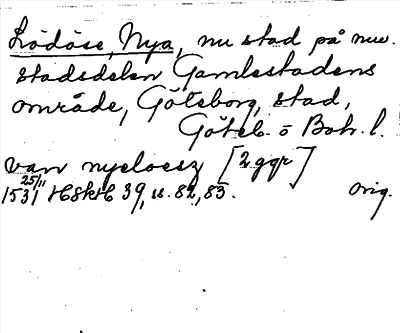 Lödöse, Nya, nu stad på nuv.
stadsdelen Gamlestadens
område, Göteborg, stad,
Göteb. o Boh. l.
van nyeloesz [2 ggr]
25/11
1531 HSkH 39, s. 82, 83. Orig.